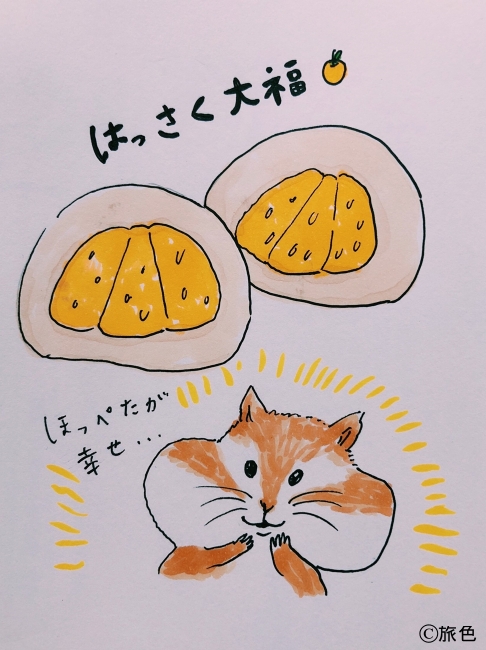 はっさく大福
ほっぺたが
幸せ...
©旅色